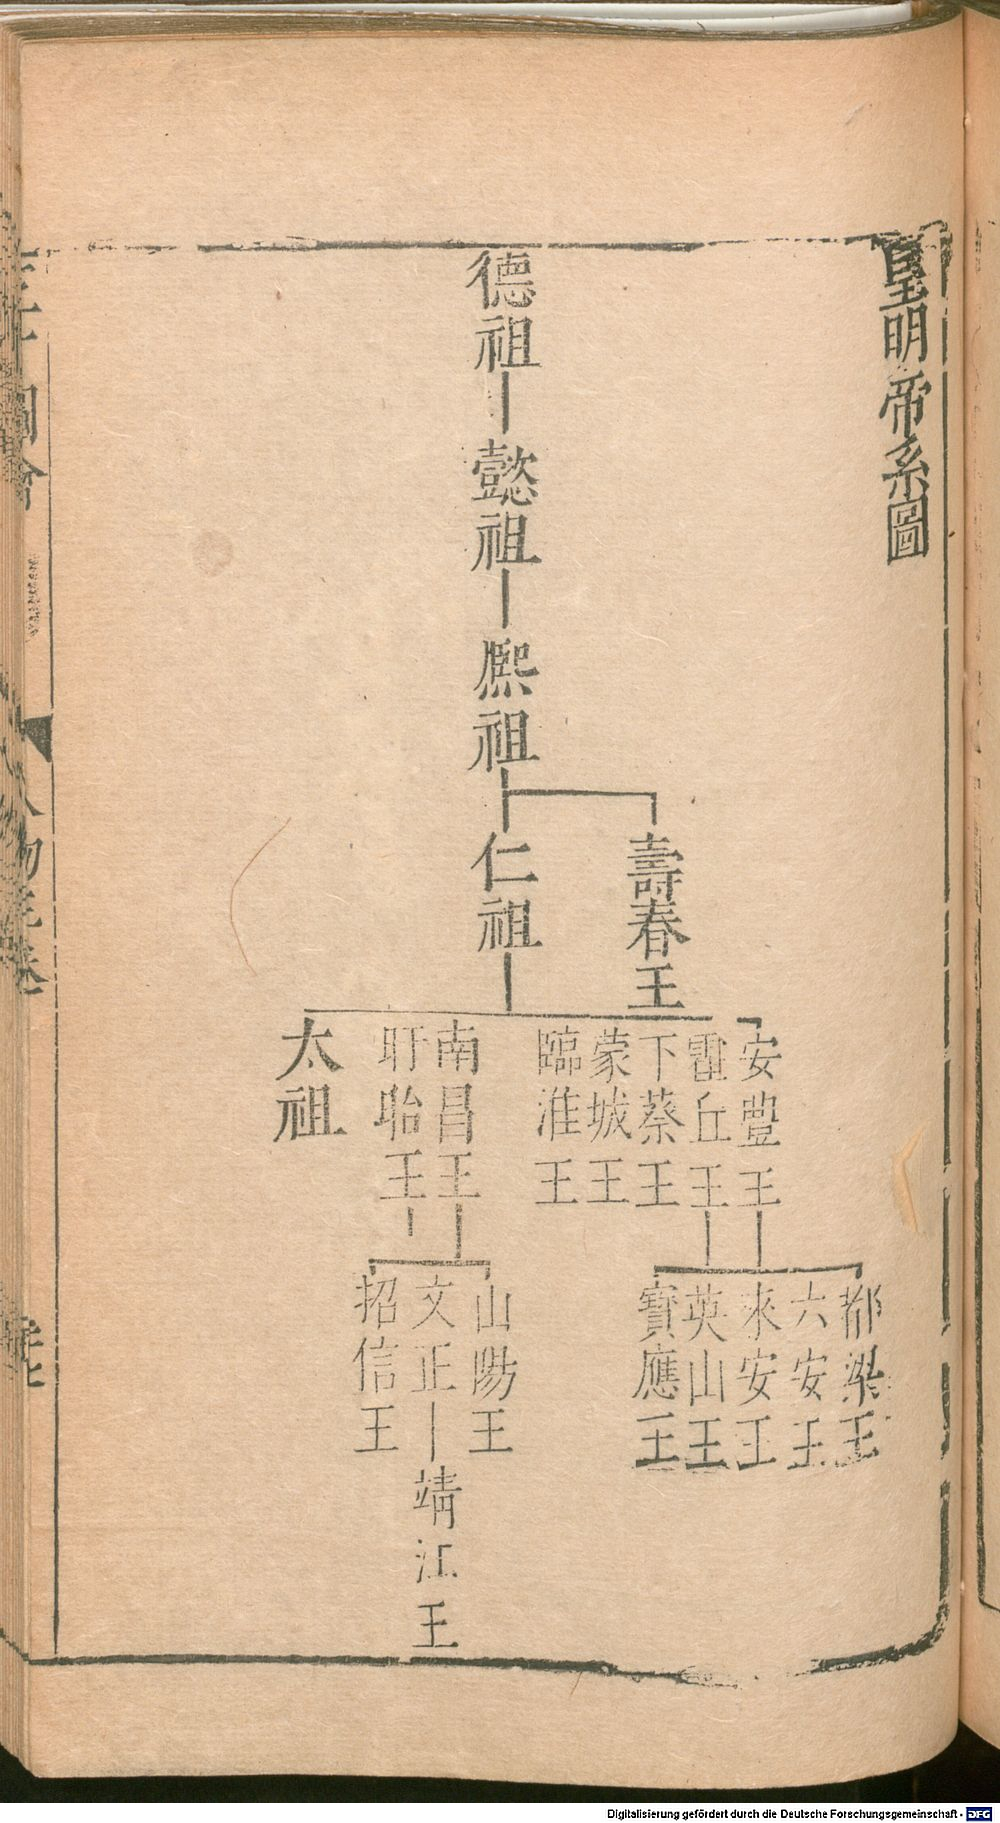 皇明帝系圖
德祖
懿祖
熈祖
仁祖
壽春王
安豐王
霍丘王
下蔡王
蒙城王
臨淮王
南昌王
盱眙王
太祖
都梁王
六安王
來安王
英山王
寶應王
山陽王
文正
招信王
靖江王
Digitalisierung gefördert durch die Deutsche Forschungsgemeinschaft - DFG